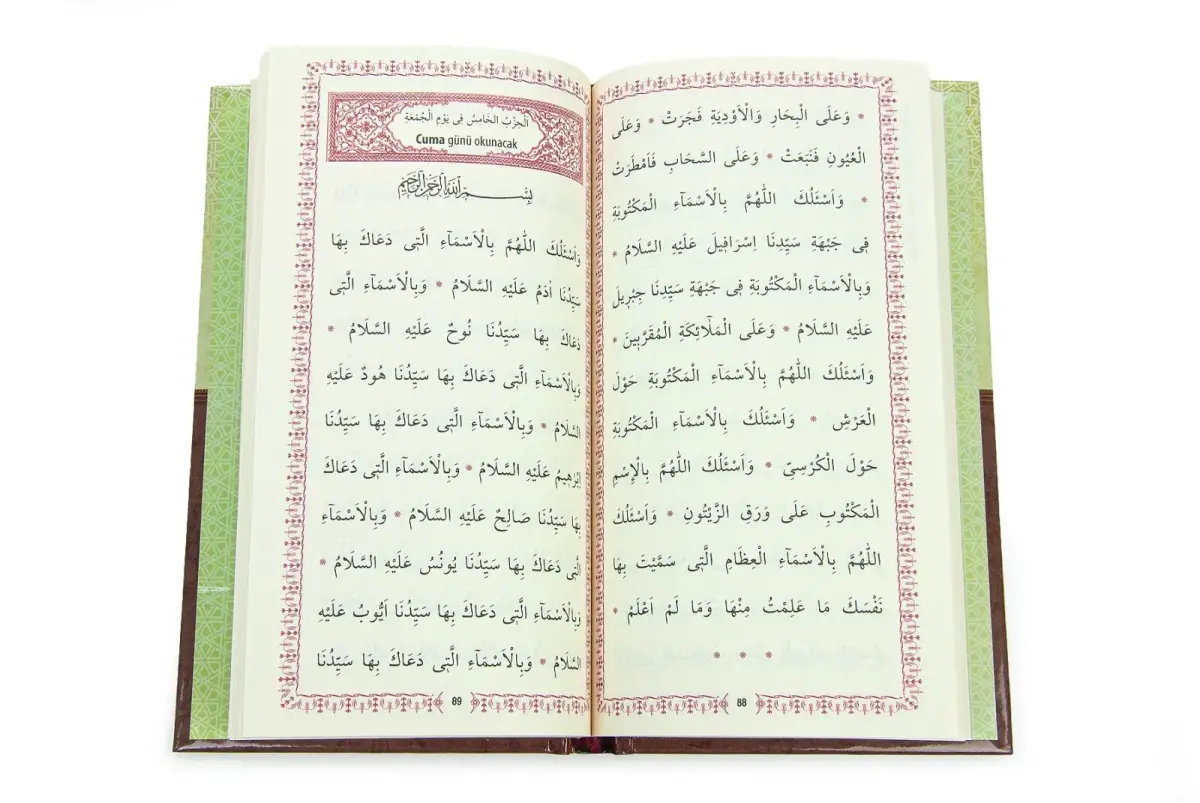 * وَعَلَى الْبِحَارِ وَالْاَوْدِيَةِ فَجَرَتْ * وَعَلَى
الْعُيُونِ فَنَبَعَتْ * وَعَلَى السَّحَابِ فَاَمْطَرَتْ
* وَاَسْئَلُكَ اللّٰهُمَّ بِالْاَسْمَآءِ الْمَكْتُوبَةِ
فِى جَبْهَةِ سَيِّدِنَا اِسْرَافِيلَ عَلَيْهِ السَّلَامُ *
وَبِالْاَسْمَآءِ الْمَكْتُوبَةِ فِى جَبْهَةِ سَيِّدِنَا جِبْرِيلَ
عَلَيْهِ السَّلَامُ * وَعَلَى الْمَلٰٓائِكَةِ الْمُقَرَّبِينَ *
وَاَسْئَلُكَ اللّٰهُمَّ بِالْاَسْمَآءِ الْمَكْتُوبَةِ حَوْلَ
الْعَرْشِ * وَاَسْئَلُكَ بِالْاَسْمَآءِ الْمَكْتُوبَةِ
حَوْلَ الْكُرْسِىِّ * وَاَسْئَلُكَ اللّٰهُمَّ بِالْاِسْمِ
الْمَكْتُوبِ عَلَى وَرَقِ الزَّيْتُونِ * وَاَسْئَلُكَ
اللّٰهُمَّ بِالْاَسْمَآءِ الْعِظَامِ الَّتِى سَمَّيْتَ بِهَا
نَفْسَكَ مَا عَلِمْتُ مِنْهَا وَمَا لَمْ اَعْلَمْ *
* * *
88
اَلْحِزْبُ الْخَامِسُ فِى يَوْمِ الْجُمْعَةِ
Cuma günü okunacak
بِسْمِ اللّٰهِ الرَّحْمٰنِ الرَّحِيمِ
وَاَسْئَلُكَ اللّٰهُمَّ بِالْاَسْمَآءِ الَّتِى دَعَاكَ بِهَا
سَيِّدُنَا اٰدَمُ عَلَيْهِ السَّلَامُ * وَبِالْاَسْمَآءِ الَّتِى
دَعَاكَ بِهَا سَيِّدُنَا نُوحٌ عَلَيْهِ السَّلَامُ *
وَبِالْاَسْمَآءِ الَّتِى دَعَاكَ بِهَا سَيِّدُنَا هُودٌ عَلَيْهِ
السَّلَامُ * وَبِالْاَسْمَآءِ الَّتِى دَعَاكَ بِهَا سَيِّدُنَا
اِبْرٰهِيمُ عَلَيْهِ السَّلَامُ * وَبِالْاَسْمَآءِ الَّتِى دَعَاكَ
بِهَا سَيِّدُنَا صَالِحٌ عَلَيْهِ السَّلَامُ * وَبِالْاَسْمَآءِ
الَّتِى دَعَاكَ بِهَا سَيِّدُنَا يُونُسُ عَلَيْهِ السَّلَامُ *
وَبِالْاَسْمَآءِ الَّتِى دَعَاكَ بِهَا سَيِّدُنَا اَيُّوبُ عَلَيْهِ
السَّلَامُ * وَبِالْاَسْمَآءِ الَّتِى دَعَاكَ بِهَا سَيِّدُنَا
89